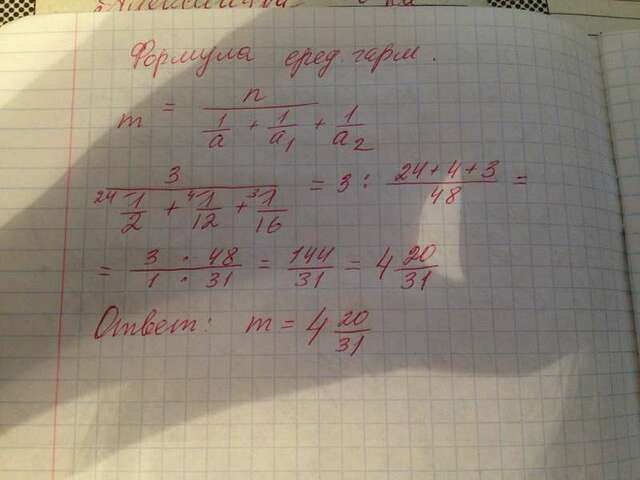 Формула сред. герм.
m = n / (1/a + 1/a₁ + 1/a₂)
3 / (²⁴⁾1/2 + ⁴⁾1/12 + ³⁾1/16) = 3 : (24+4+3)/48 =
= 3/1 · 48/31 = 144/31 = 4 20/31
Ответ: m = 4 20/31